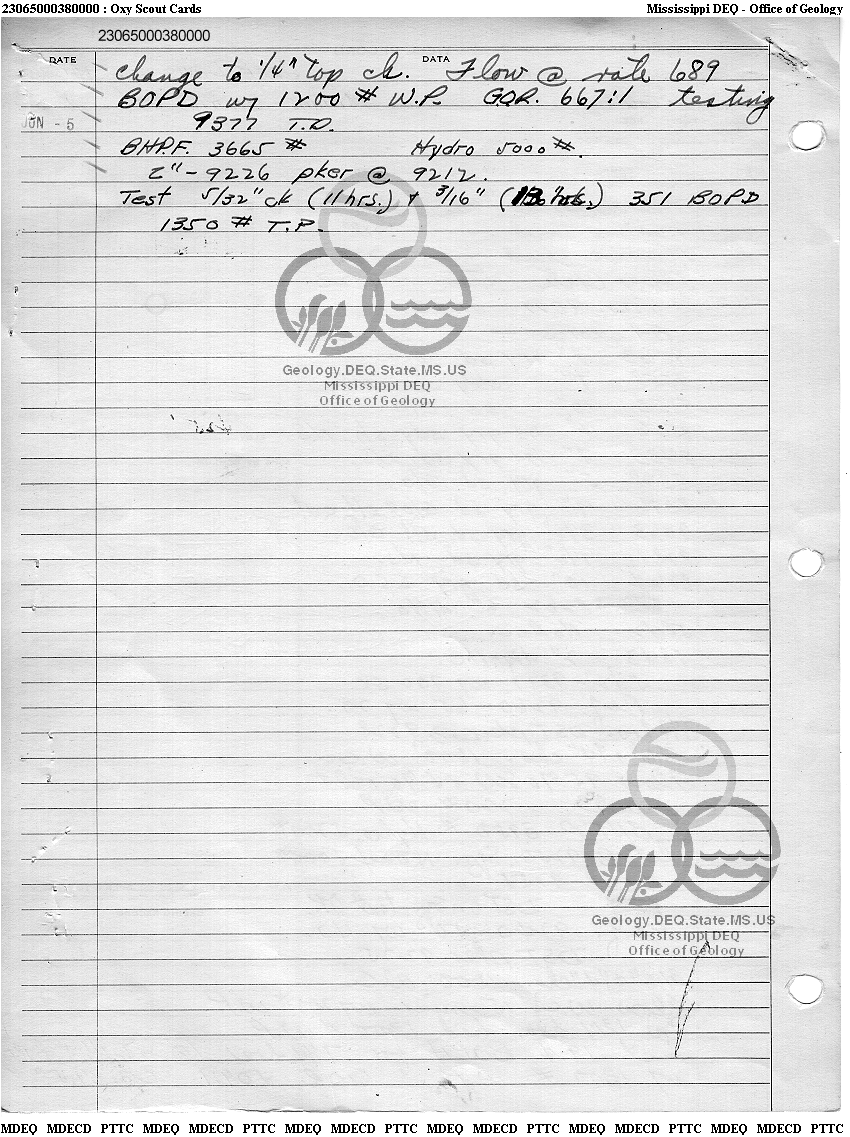 23065000380000 : Oxy Scout Cards
Mississippi DEQ - Office of Geology
23065000380000
DATE
DATA
change to 1/4" top ck. Flow @ rate 689
BOPD w/ 1200 # W.P. GOR. 667:1 testing
JUN - 5
9377 T.D.
BHP.F. 3665 # Hydro 5000 #.
2" - 9226 pker @ 9212.
Test 5/32" ck (11 hrs.) & 3/16" ( hrs.) 351 BOPD
1350 # T.P.
Geology.DEQ.State.MS.US
Mississippi DEQ
Office of Geology
Geology.DEQ.State.MS.US
Mississippi DEQ
Office of Geology
MDEQ MDECD PTTC MDEQ MDECD PTTC MDEQ MDECD PTTC MDEQ MDECD PTTC MDEQ MDECD PTTC MDEQ MDECD PTTC